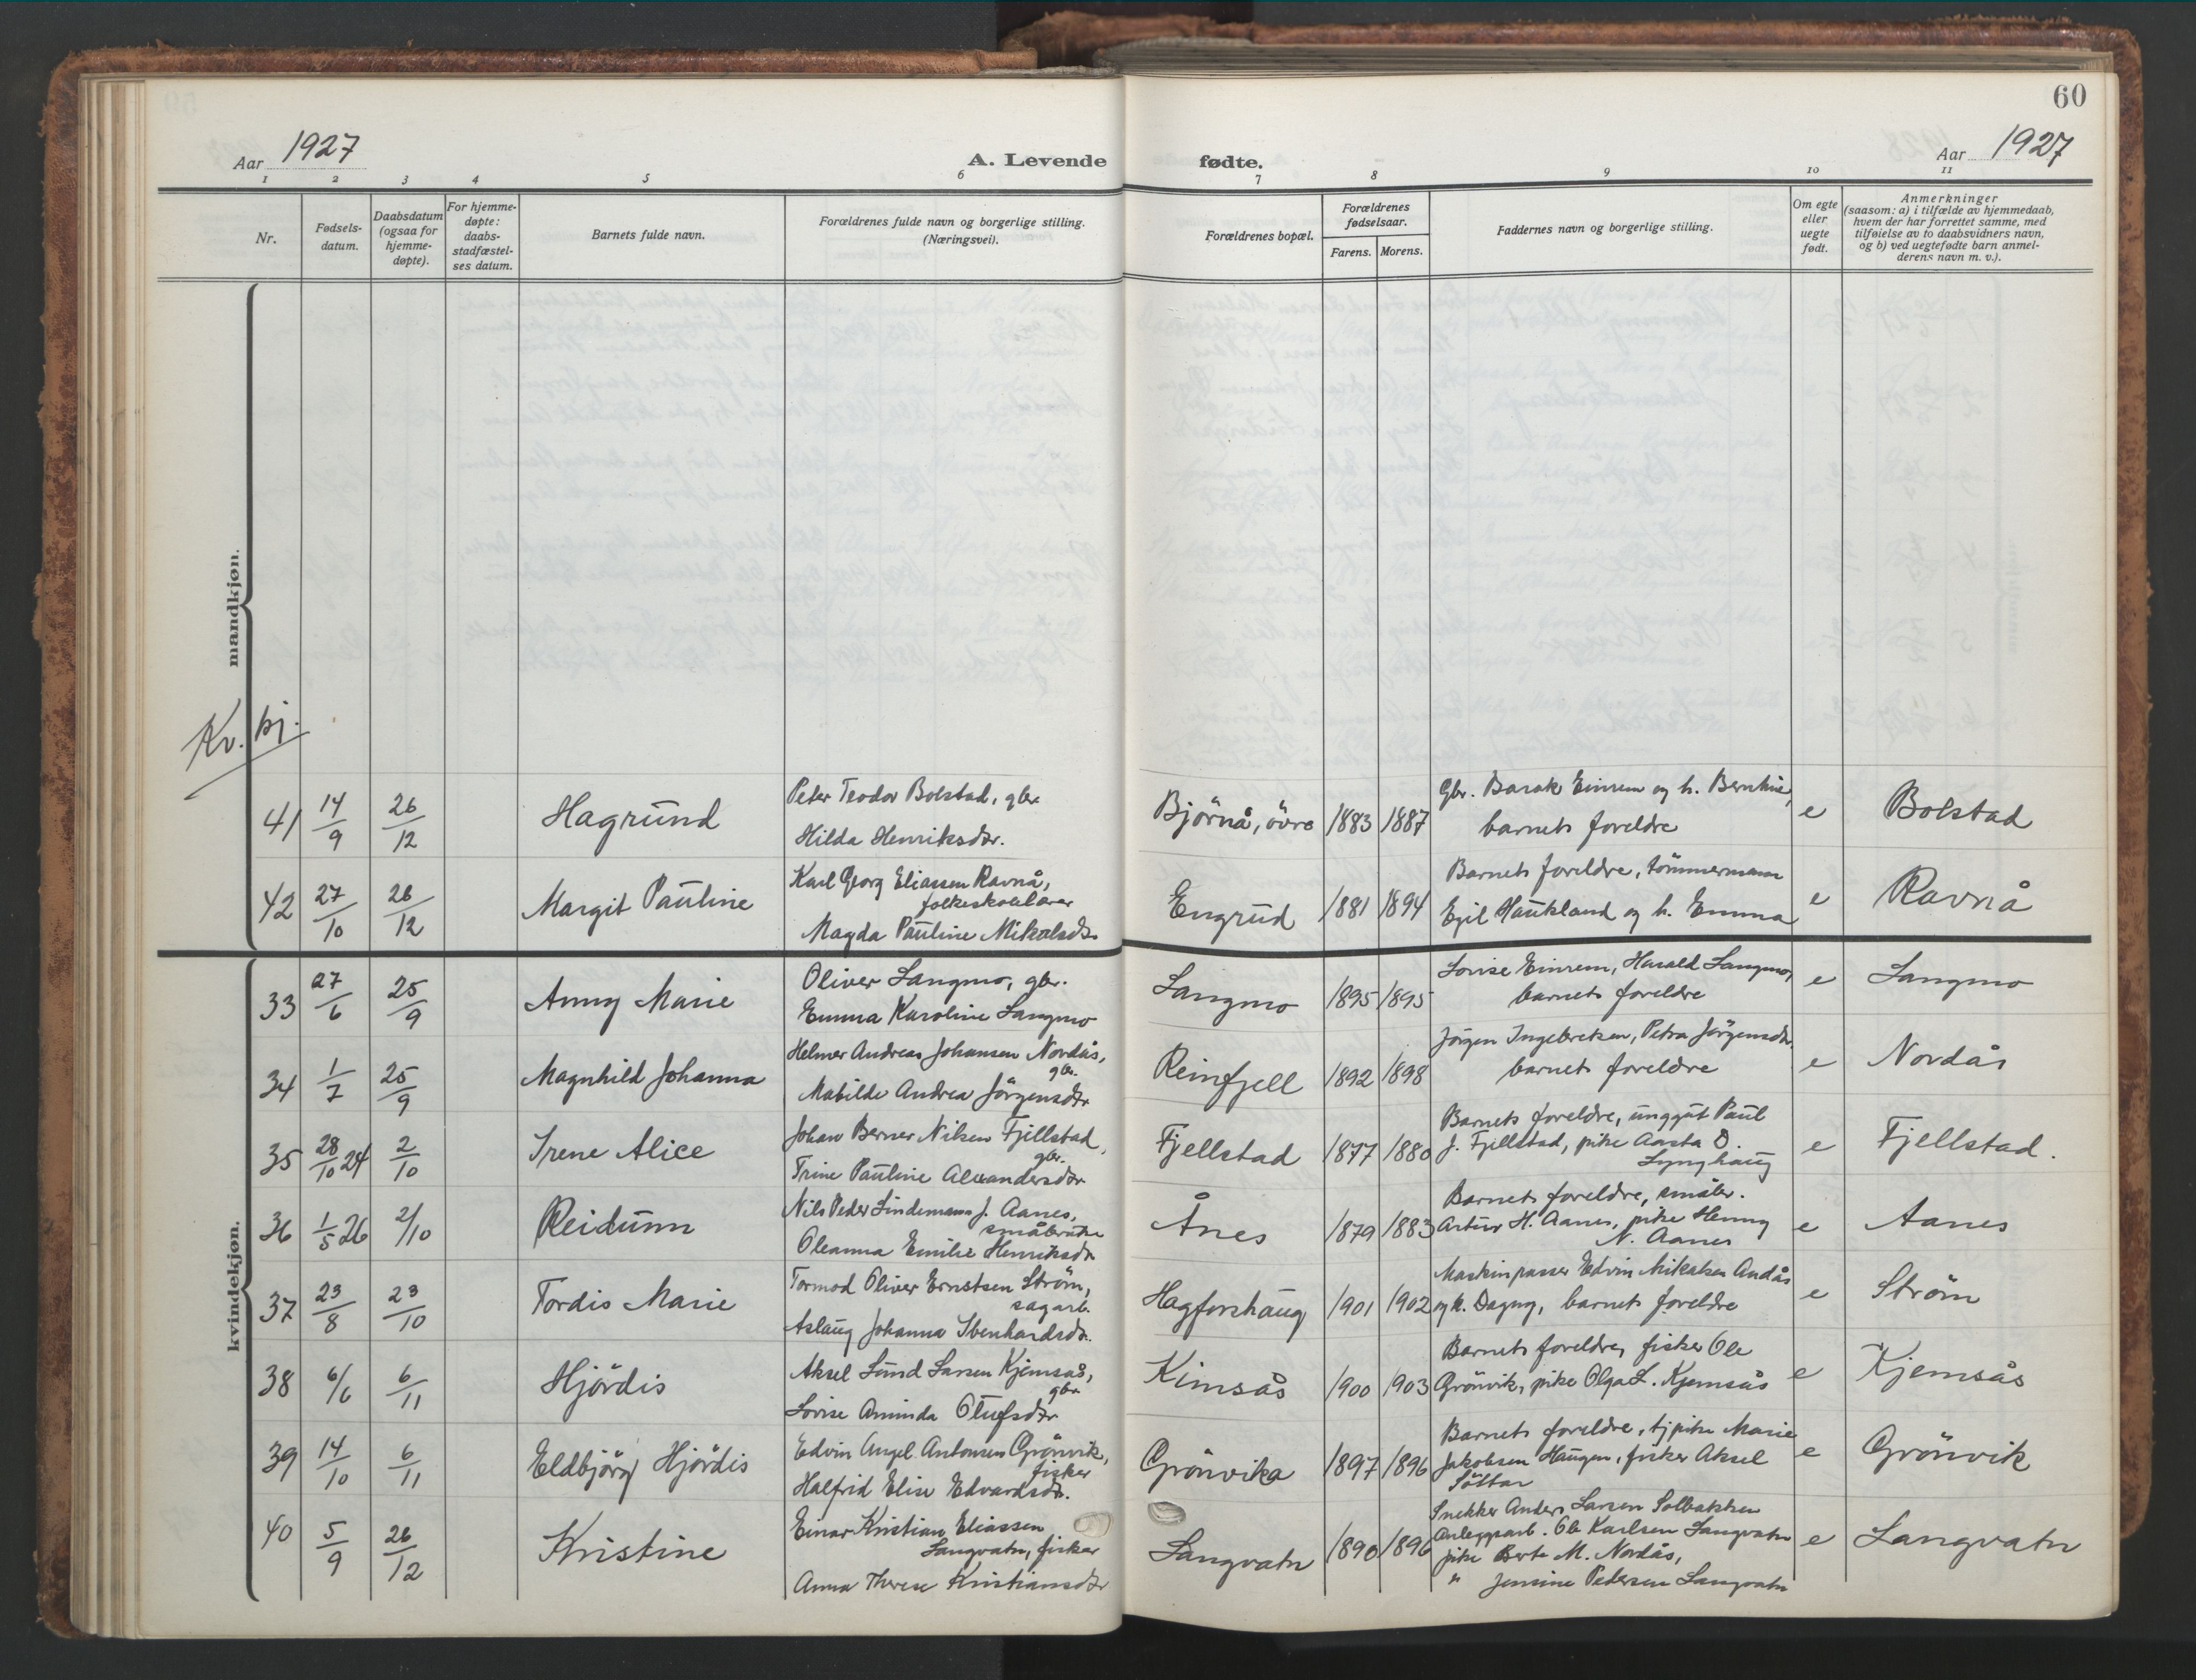 60
Aar 1927
A. Levende
fødte.
Aar 1927
1 2 3 4 5 6 7 8 9 10 11
Nr.
Fødsels-
datum.
Daabsdatum
(ogsaa for
hjemme-
døpte).
For hjemme-
døpte:
daabs-
stadfæstel-
ses datum.
Barnets fulde navn.
Forældrenes fulde navn og borgerlige stilling.
(Næringsvei).
Forældrenes bopæl.
Forældrenes
fødselsaar.
Farens. Morens.
Faddernes navn og borgerlige stilling.
Om egte
eller
uegte
født.
Anmerkninger
(saasom: a) i tilfælde av hjemmedaab,
hvem der har forrettet samme, med
tilføielse av to daabsvidners navn,
og b) ved uegtefødte barn anmel-
derens navn m. v.).
mandkjøn.
Kv. kj.
41 14/9 26/12 Hagrund
Peter Teodor Bolstad, gbr.
Hilda Henriksdtr.
Björnå, övre 1883 1887
Gbr. Barak Einrem og h. Berntine,
barnets foreldre
e Bolstad
42 27/10 26/12 Margit Pauline
Karl Georg Eliassen Ravnå,
folkeskolelærer
Magda Pauline Mikalsdtr.
Engrud 1881 1894
Barnets foreldre, tömmermann
Egil Haukland og h. Emma
e Ravnå
kvindekjøn.
33 27/6 25/9 Anny Marie
Oliver Langmo, gbr.
Emma Karoline Langmo
Langmo 1895 1895
Lovise Einrem, Harald Langmo,
barnets foreldre
e Langmo
34 1/7 25/9 Magnhild Johanna
Helmer Andreas Johansen Nordås,
gbr.
Matilde Andrea Jörgensdtr
Reinfjell 1892 1898
Jörgen Ingebretsen, Petra Jörgensdtr.
barnets foreldre
e Nordås
35 28/10 24 2/10 Irene Alice
Johan Berner Nilsen Fjellstad,
gbr.
Trine Pauline Alexandersdtr
Fjellstad 1877 1880
Barnets foreldre, unggut Paul
J. Fjellstad, pike Aasta O.
Lynghaug
e Fjellstad.
36 1/5 26 2/10 Reidunn
Nils Peder Lindemann J. Aanes,
småbruker
Oleanna Emilie Henriksdtr
Ånes 1879 1883
Barnets foreldre, småbr.
Artur H. Aanes, pike Henny
N. Aanes
e Aanes
37 23/8 23/10 Tordis Marie
Tormod Oliver Ernstsen Ström,
sagarb.
Aslaug Johanna Ibenhardsdtr.
Hagforshaug 1901 1902
Maskinpasser Edvin Mikalsen Andås
og h. Dagny, barnets foreldre
e Ström
38 6/6 6/11 Hjördis
Aksel Lund Larsen Kjemsås,
gbr.
Lovise Aminda Olufsdtr
Kimsås 1900 1903
Barnets foreldre, fisker Ole
Grönvik, pike Olga L. Kjemsås
e Kjemsås
39 14/10 6/11 Eldbjörg Hjördis
Edvin Angel Antonsen Grönvik,
fisker
Halfrid Elise Edvardsdtr.
Grönvika 1897 1896
Barnets foreldre, tj.pike Marie
Jakobsen Haugen, fisker Aksel
Söttar
e Grönvik
40 5/9 26/12 Kristine
Einar Kristian Eliassen
Langvatn, fisker
Anna Therese Kristiansdtr
Langvatn 1890 1896
Snekker Anders Larsen Solbakken
Anleggsarb. Ole Karlsen Langvatn
pike Berte M. Nordås,
" Jensine Pedersen Langvatn
e Langvatn